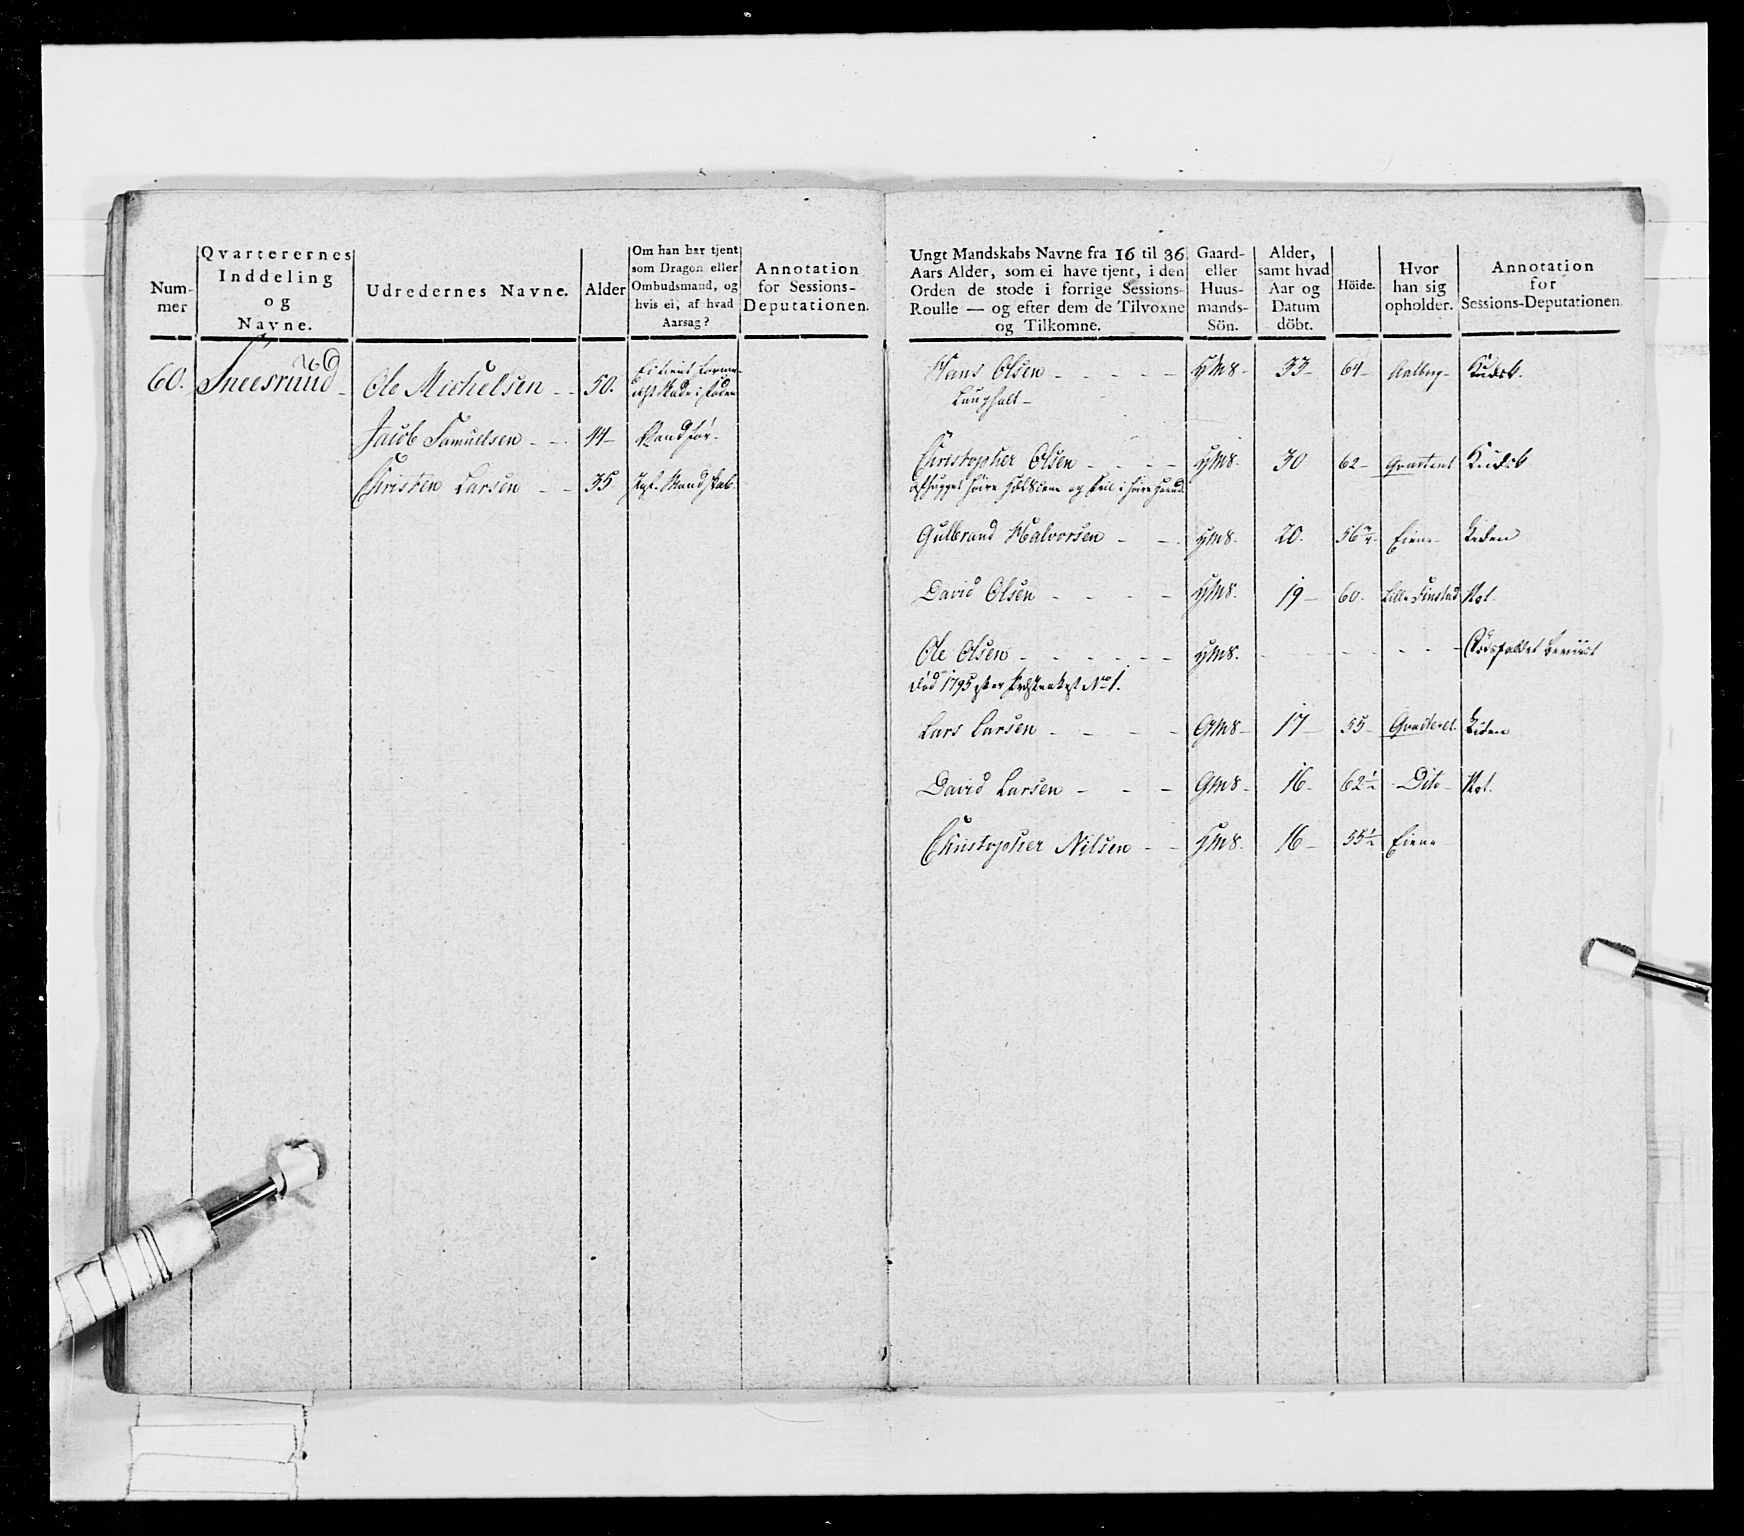 Num-
mer
Qvarterernes
Inddeling
og
Navne.
Udredernes Navne.
Alder
Om han har tjent
som Dragon eller
Ombudsmand, og
hvis ei, af hvad
Aarsag?
Annotation
for Sessions-
Deputationen.
60. Sneesrud Ole Michelsen - - 50.
Jacob Samuelsen - - 44 -
Christen Larsen - - 35
Ungt Mandskabs Navne fra 16 til 36
Aars Alder, som ei have tjent, i den
Orden de stode i forrige Sessions-
Roulle — og efter dem de Tilvoxne
og Tilkomne.
Gaard-
eller
Huus-
mands-
Sön.
Alder,
samt hvad
Aar og
Datum
döbt.
Höide.
Hvor
han sig
opholder.
Annotation
for
Sessions-Deputationen.
Hans Olsen - - - - - HMS - 33 - 64 - Aalberg -
Christopher Olsen - - - - HMS. 30 62 -
Gulbrand Halvorsen - - HMS. 20. 56 Eiene Liden
David Olsen - - - - HMS. 19 - 60. Lille Finstad Not.
Ole Olsen - - - - - - HMS.
død 1795 No 1.
Lars Larsen - - - - GMS - 17 - 55 - Liden
David Larsen - - - GMS - 16 - 62 1/2 Dito - Not.
Christopher Nilsen - - HMS. 16 - 55 1/2 Eiene